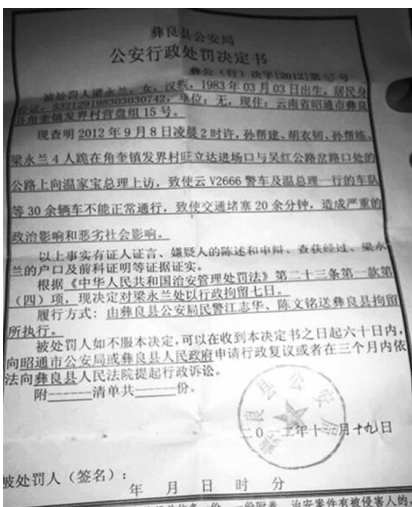 彝良县公安局
公安行政处罚决定书
彝公(行)决字[2012]第 号
被处罚人梁永兰,女,汉族,1983年03月03日出生,居民身
份证:532129198303030742,单位:无,现住:云南省昭通市彝良
县角奎镇发界村营盘组15号。
现查明2012年9月8日凌晨2时许,孙帮建、胡衣钢、孙帮练、
梁永兰4人跪在角奎镇发界村旺立达进场口与吴红公路岔路口处的
公路上向温家宝总理上访,致使云V2666警车及温总理一行的车队
等30余辆车不能正常通行,致使交通堵塞20余分钟,造成严重的
政治影响和恶劣社会影响。
以上事实有证人证言、嫌疑人的陈述和申辩、查获经过、梁永
兰的户口及前科证明等证据证实。
根据《中华人民共和国治安管理处罚法》第二十三条第一款第
(四)项,现决定对梁永兰处以行政拘留七日。
履行方式:由彝良县公安局民警江志华、陈文铭送彝良县拘留
所执行。
被处罚人如不服本决定,可以在收到本决定书之日起六十日内,
向昭通市公安局或彝良县人民政府申请行政复议或者在三个月内依
法向彝良县人民法院提起行政诉讼。
附 清单共 份。
彝良县公安局
二〇一二年十一月十九日
被处罚人(签名):
年 月 日 时 分
治安案件有被侵害人的,